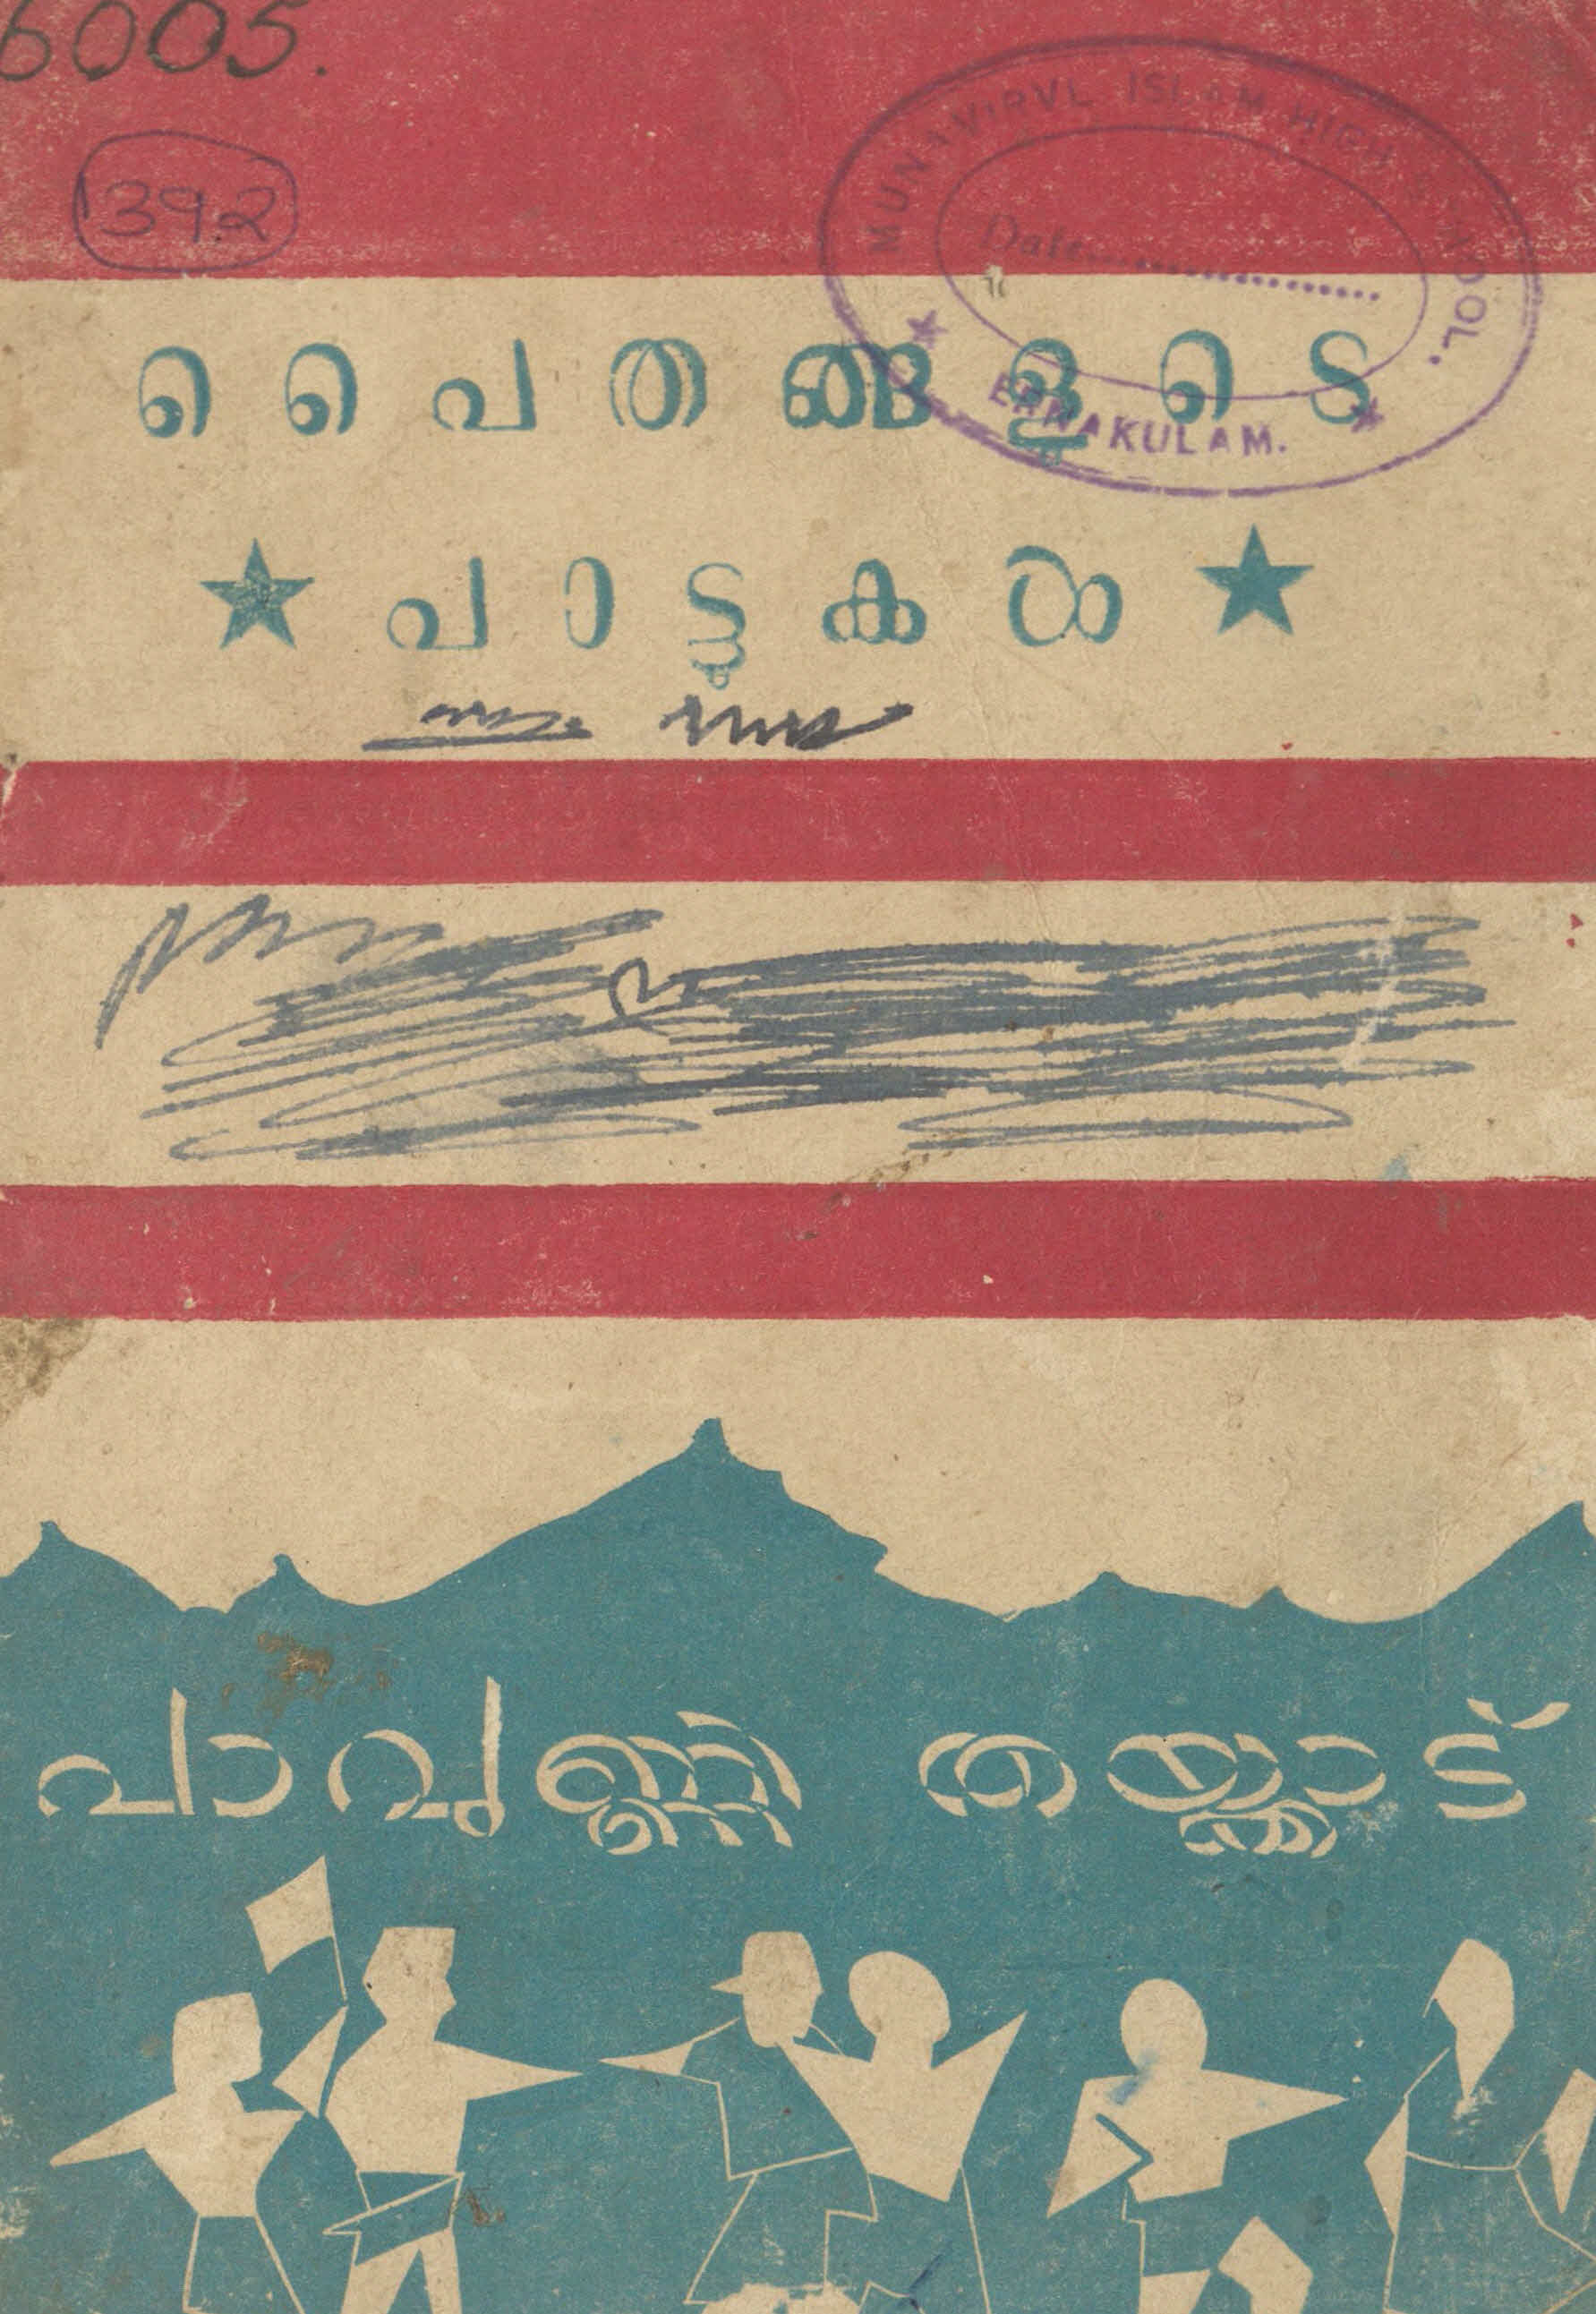 6005.
392
MUNAVIRVL ISLAM HIGH SCHOOL.
Date
ERNAKULAM.
പൈതങ്ങളുടെ
★ പാട്ടുകൾ ★
പാവുണ്ണി തയ്യാട്ട്